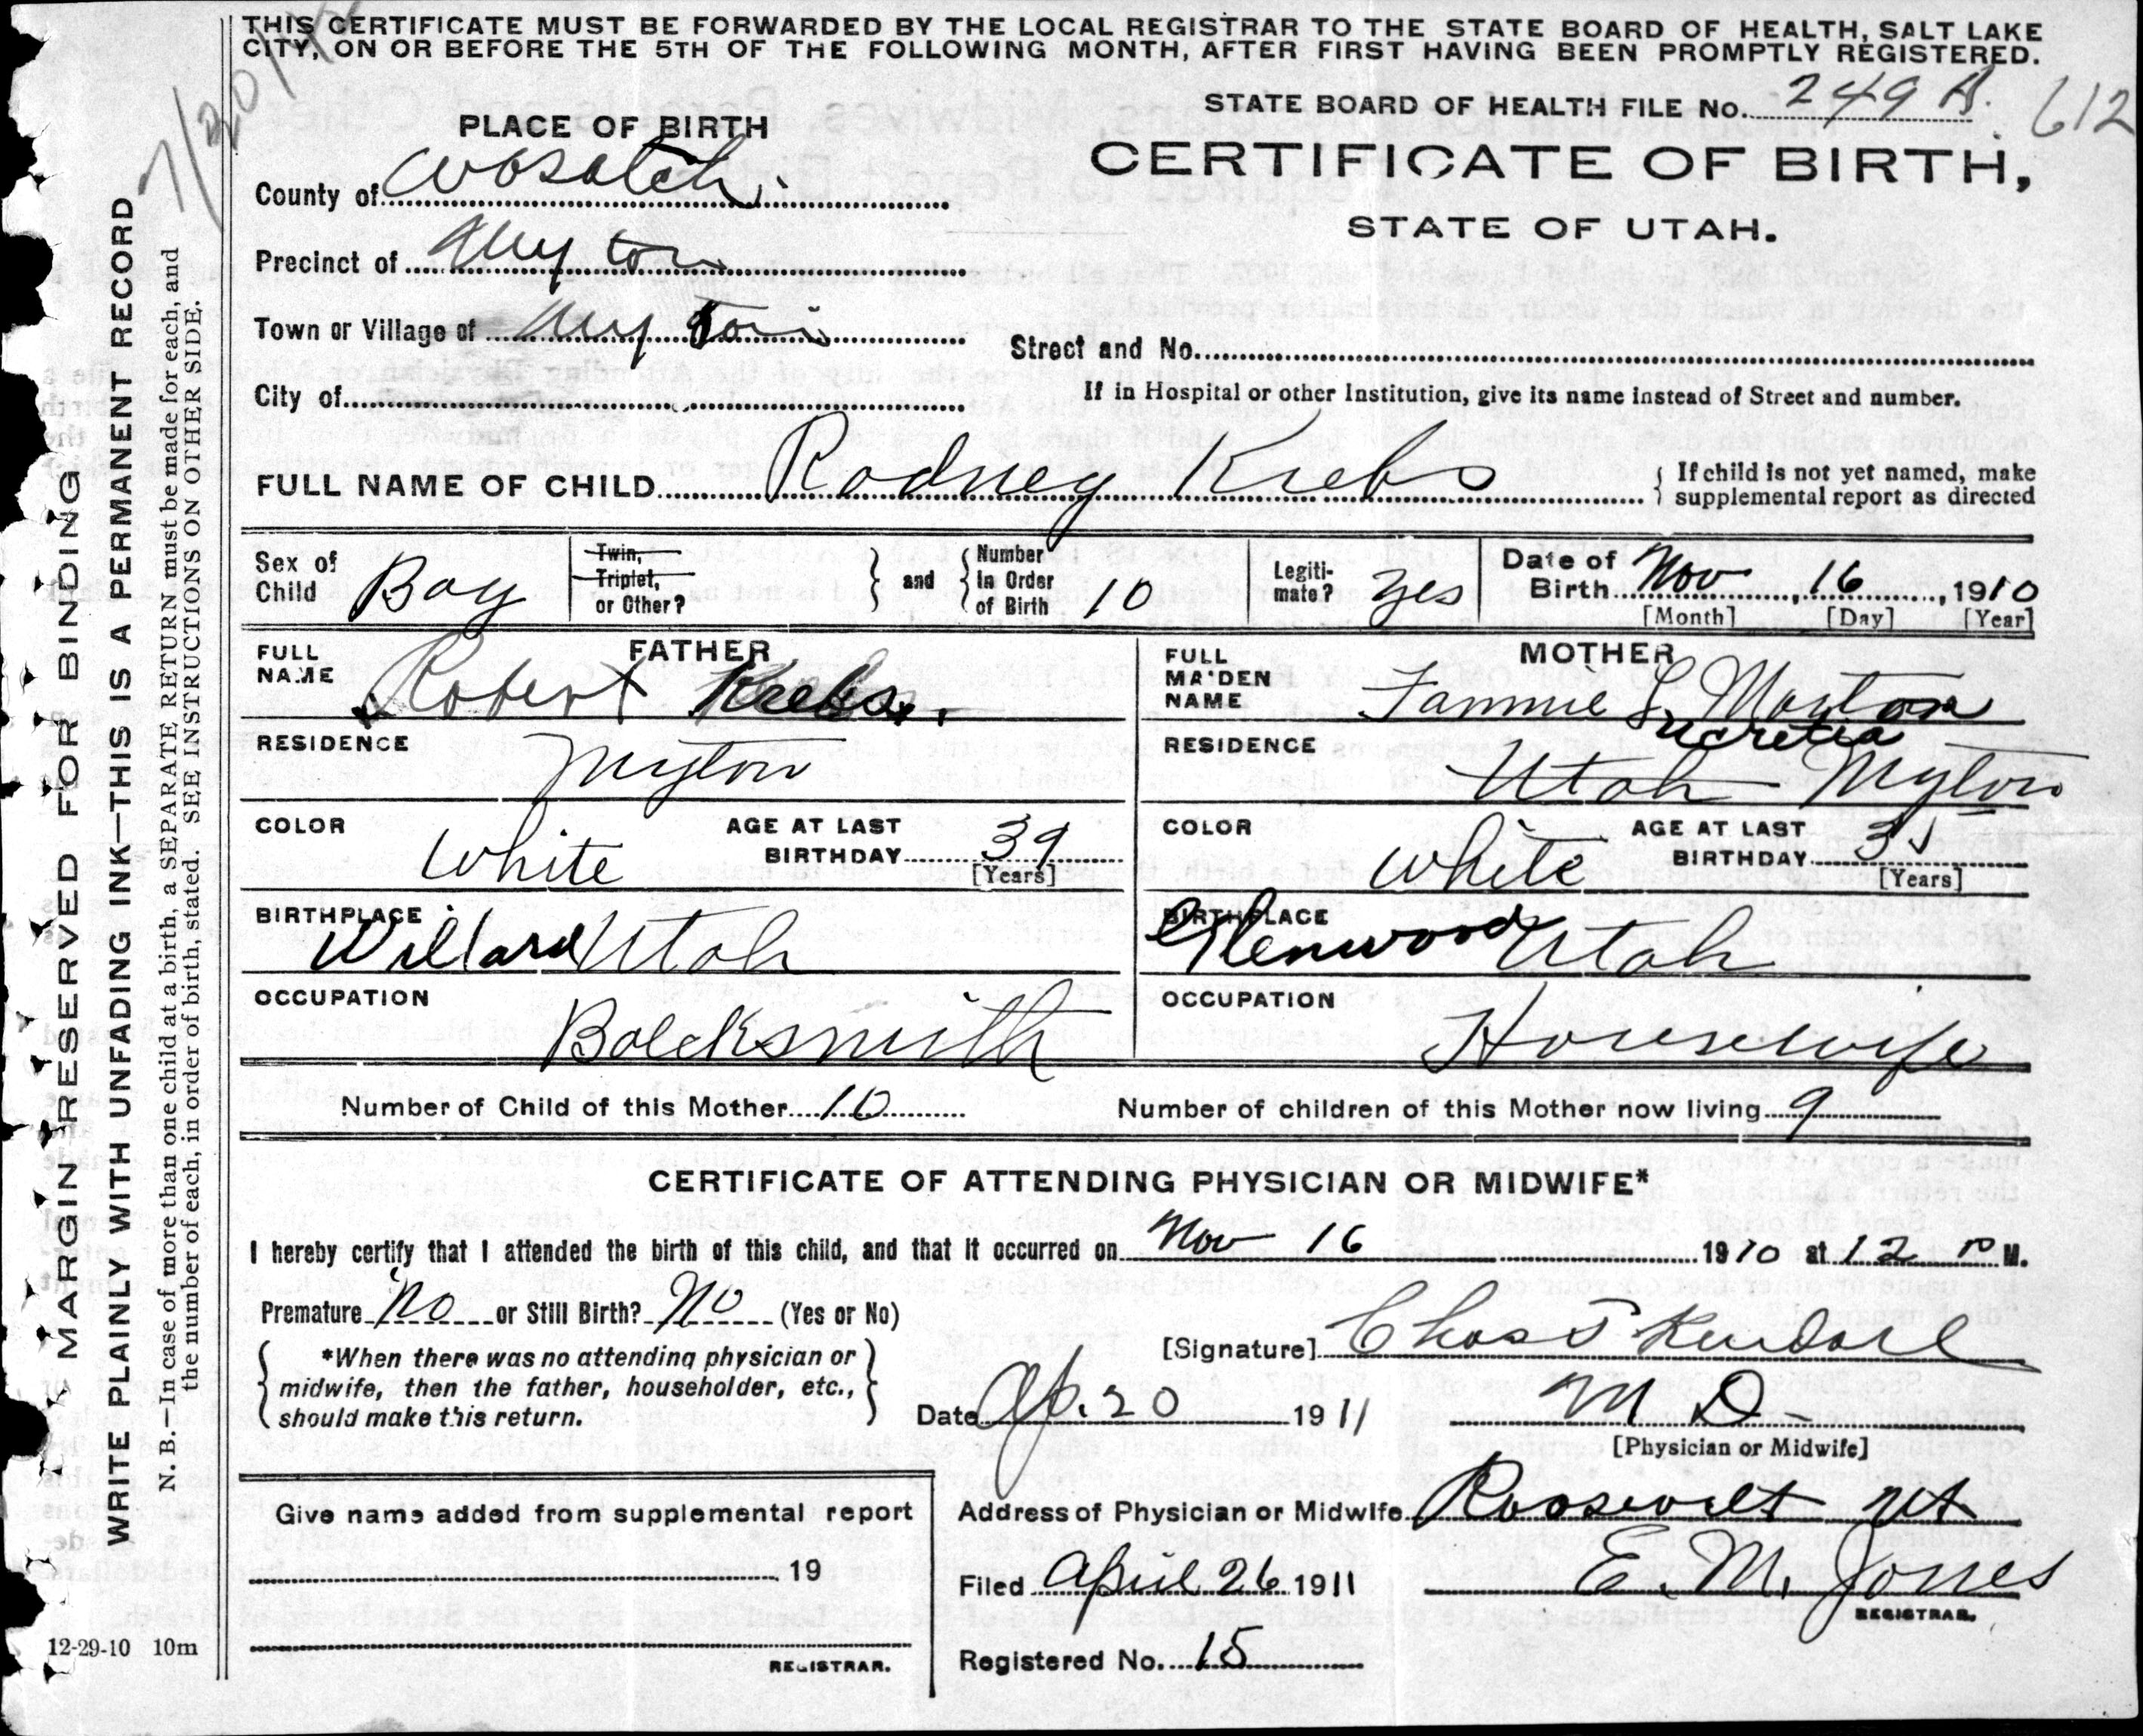 THIS CERTIFICATE MUST BE FORWARDED BY THE LOCAL REGISTRAR TO THE STATE BOARD OF HEALTH, SALT LAKE
CITY, ON OR BEFORE THE 5TH OF THE FOLLOWING MONTH, AFTER FIRST HAVING BEEN PROMPTLY REGISTERED.
STATE BOARD OF HEALTH FILE No. 249 B. 612
PLACE OF BIRTH
CERTIFICATE OF BIRTH,
STATE OF UTAH.
County of Wosatch
Precinct of Myton
Town or Village of Myton
Street and No.
City of
If in Hospital or other Institution, give its name instead of Street and number.
FULL NAME OF CHILD Rodney Krebs { If child is not yet named, make
supplemental report as directed
Sex of Child Boy
Twin, Triplet, or Other? } and { Number in Order of Birth 10
Legitimate? yes
Date of Birth Nov 16, 1910
[Month] [Day] [Year]
FATHER
FULL NAME Robert Krebs.
RESIDENCE Myton
COLOR White AGE AT LAST BIRTHDAY 39
[Years]
BIRTHPLACE Willard Utah
OCCUPATION Bolcksmith
MOTHER
FULL MAIDEN NAME Fannie L Morton
ucretia
RESIDENCE Utah Myton
COLOR White AGE AT LAST BIRTHDAY
[Years]
BIRTHPLACE Glenwood Utah
OCCUPATION Housewife
Number of Child of this Mother 10 Number of children of this Mother now living 9
CERTIFICATE OF ATTENDING PHYSICIAN OR MIDWIFE*
I hereby certify that I attended the birth of this child, and that it occurred on Nov 16 1910 at 12 P M.
Premature No or Still Birth? No (Yes or No)
*When there was no attending physician or
midwife, then the father, householder, etc.,
should make this return.
[Signature] Chas Kendall
Date Ap. 20 1911 M D
[Physician or Midwife]
Address of Physician or Midwife Roosevelt Ut
Filed April 26 1911 E. M. Jones
REGISTRAR.
Registered No. 15
Give name added from supplemental report
19
REGISTRAR.
12-29-10 10m
MARGIN RESERVED FOR BINDING
WRITE PLAINLY WITH UNFADING INK—THIS IS A PERMANENT RECORD
N. B.—In case of more than one child at a birth, a SEPARATE RETURN must be made for each, and
the number of each, in order of birth, stated. SEE INSTRUCTIONS ON OTHER SIDE.